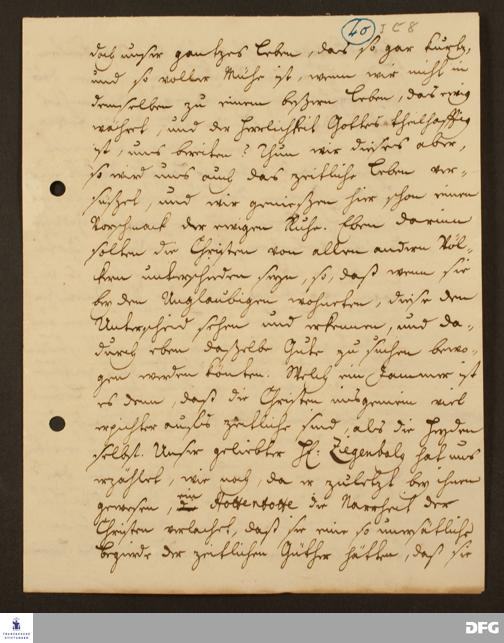 40 I C 8
doch unser gantzes Leben, das so gar kurtz,
und so voller Mühe ist, wenn wir nicht in
demselben zu einem beßern Leben, das ewig
währet, und der Herrlichkeit Gottes theilhafftig
ist, uns bereiten? Thun wir dieses aber,
so wird uns auch das zeitliche Leben ver-
süßet, und wir genießen hier schon einen
Vorschmack der ewigen Ruhe. Eben darinn
solten die Christen von allen andern Völ-
kern unterschieden seyn, so, daß wenn sie
bey den Unglaubigen wohneten, diese den
Unterscheid sehen und erkennen, und da-
durch eben daßelbe Gute zu suchen bewo-
gen werden könten. Welch ein Jammer ist
es denn, daß die Christen insgemein viel
erpichter aufs zeitliche sind, als die Heyden
selbst. Unser geliebter H: Ziegenbalg hat uns
erzählet, wie noch, da er zuletzt bey ihnen
gewesen, ein Hottentotte die Narrheit der
Christen verlachet, daß sie eine so unersätliche
Begierde der zeitlichen Güther hätten, daß sie
FRANCKESCHE STIFTUNGEN
DFG